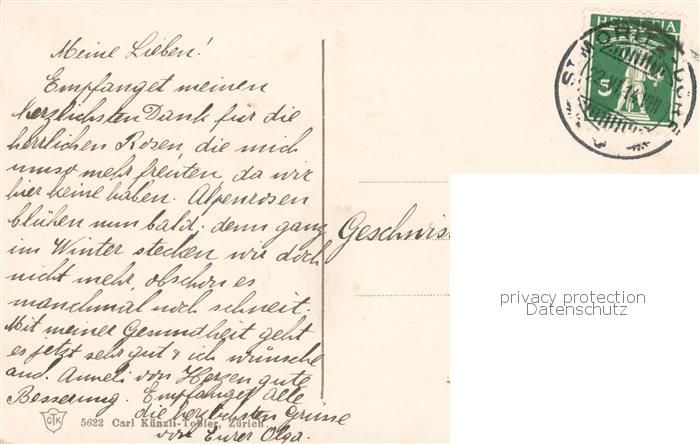 Meine Lieben!
Empfanget meinen
herzlichsten Dank für die
herrlichen Rosen, die mich
umso mehr freuten, da wir
hier keine haben. Alpenrosen
blühen nun bald; denn ganz
im Winter stecken wir doch
nicht mehr, obschon es
manchmal noch schneit.
Mit meiner Gesundheit geht
es jetzt sehr gut & ich wünsche
auch Anneli von Herzen gute
Besserung. Empfanget alle
die herzlichsten Grüsse
von Eurer Olga.
CTK
5622 Carl Künzli-Tobler, Zürich
HELVETIA
5
ST. MORITZ-DORF
Geschwis
privacy protection
Datenschutz